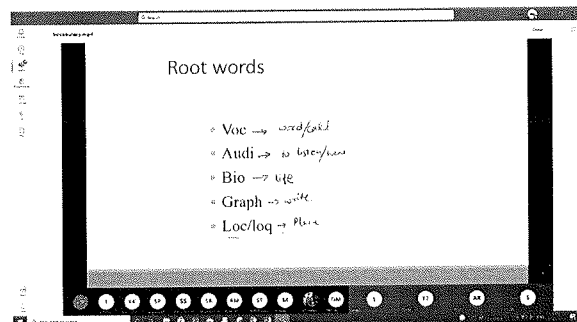 Search
Root words
Voc → word/called
Audi → to listen/hear
Bio → life
Graph → write
Loc/loq → Place